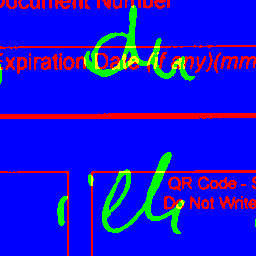 Document Number
du
Expiration Date (if any)(mm
eh
QR Code - S
Do Not Write